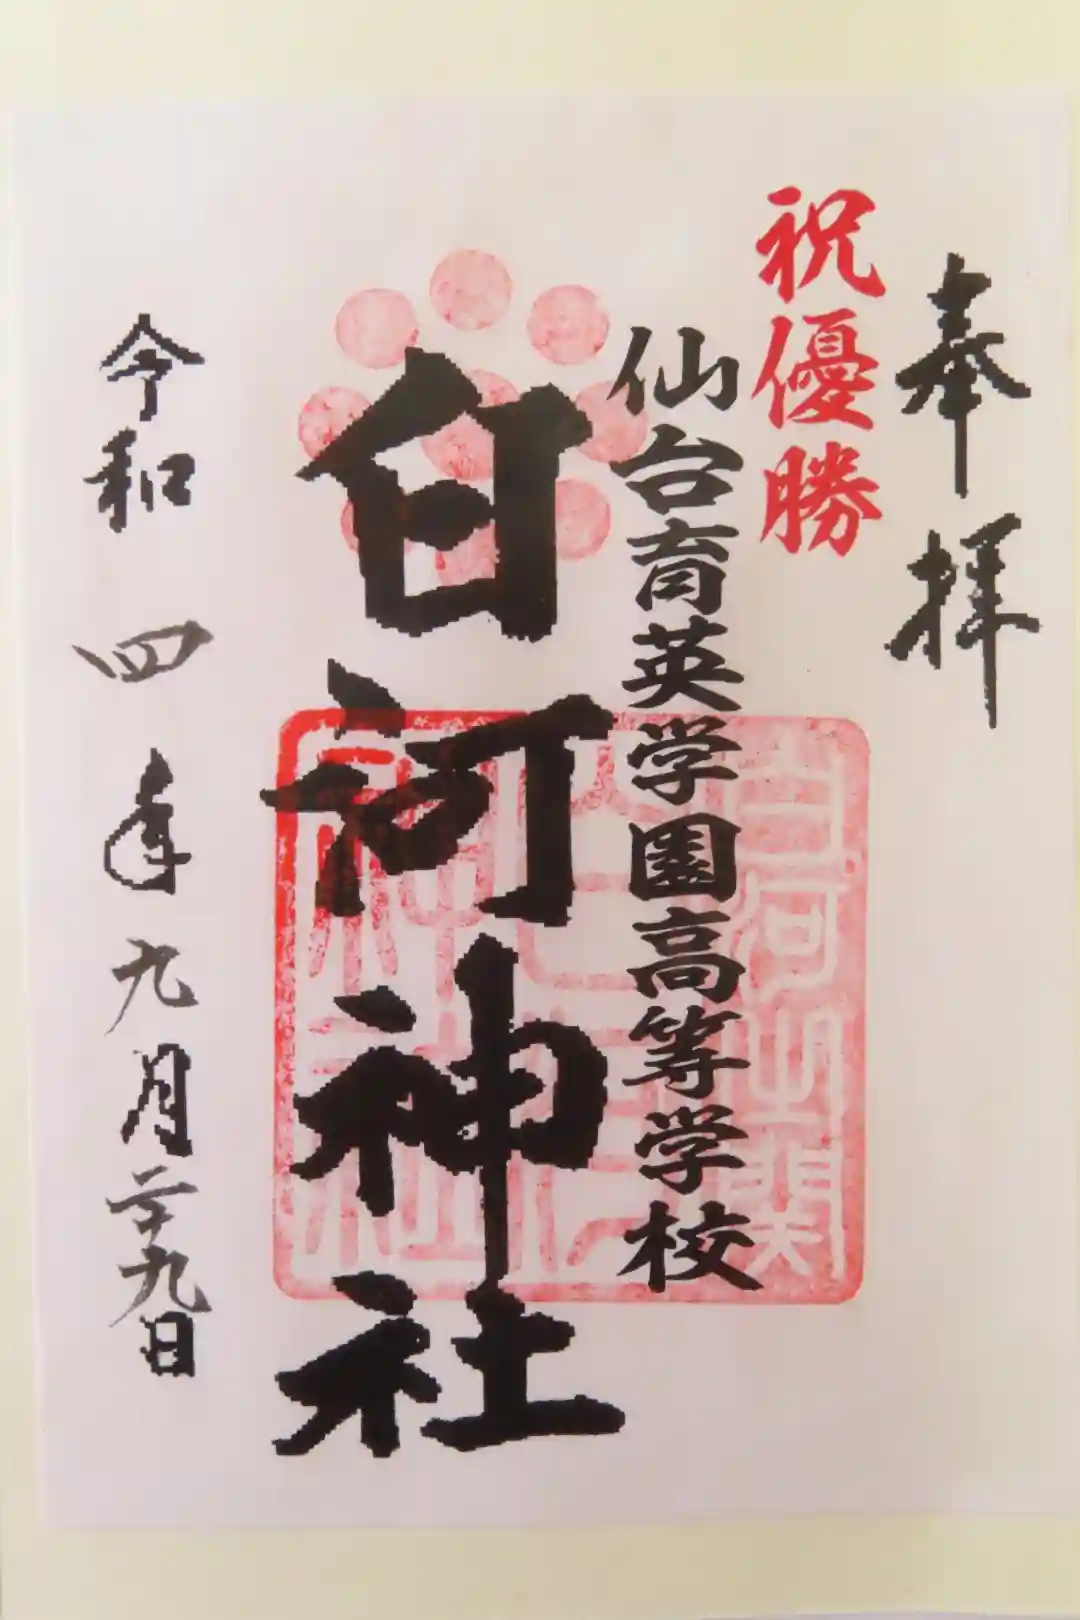 奉拝
祝優勝
仙台育英学園高等学校
白河神社
令和四年九月二十九日
白河之関